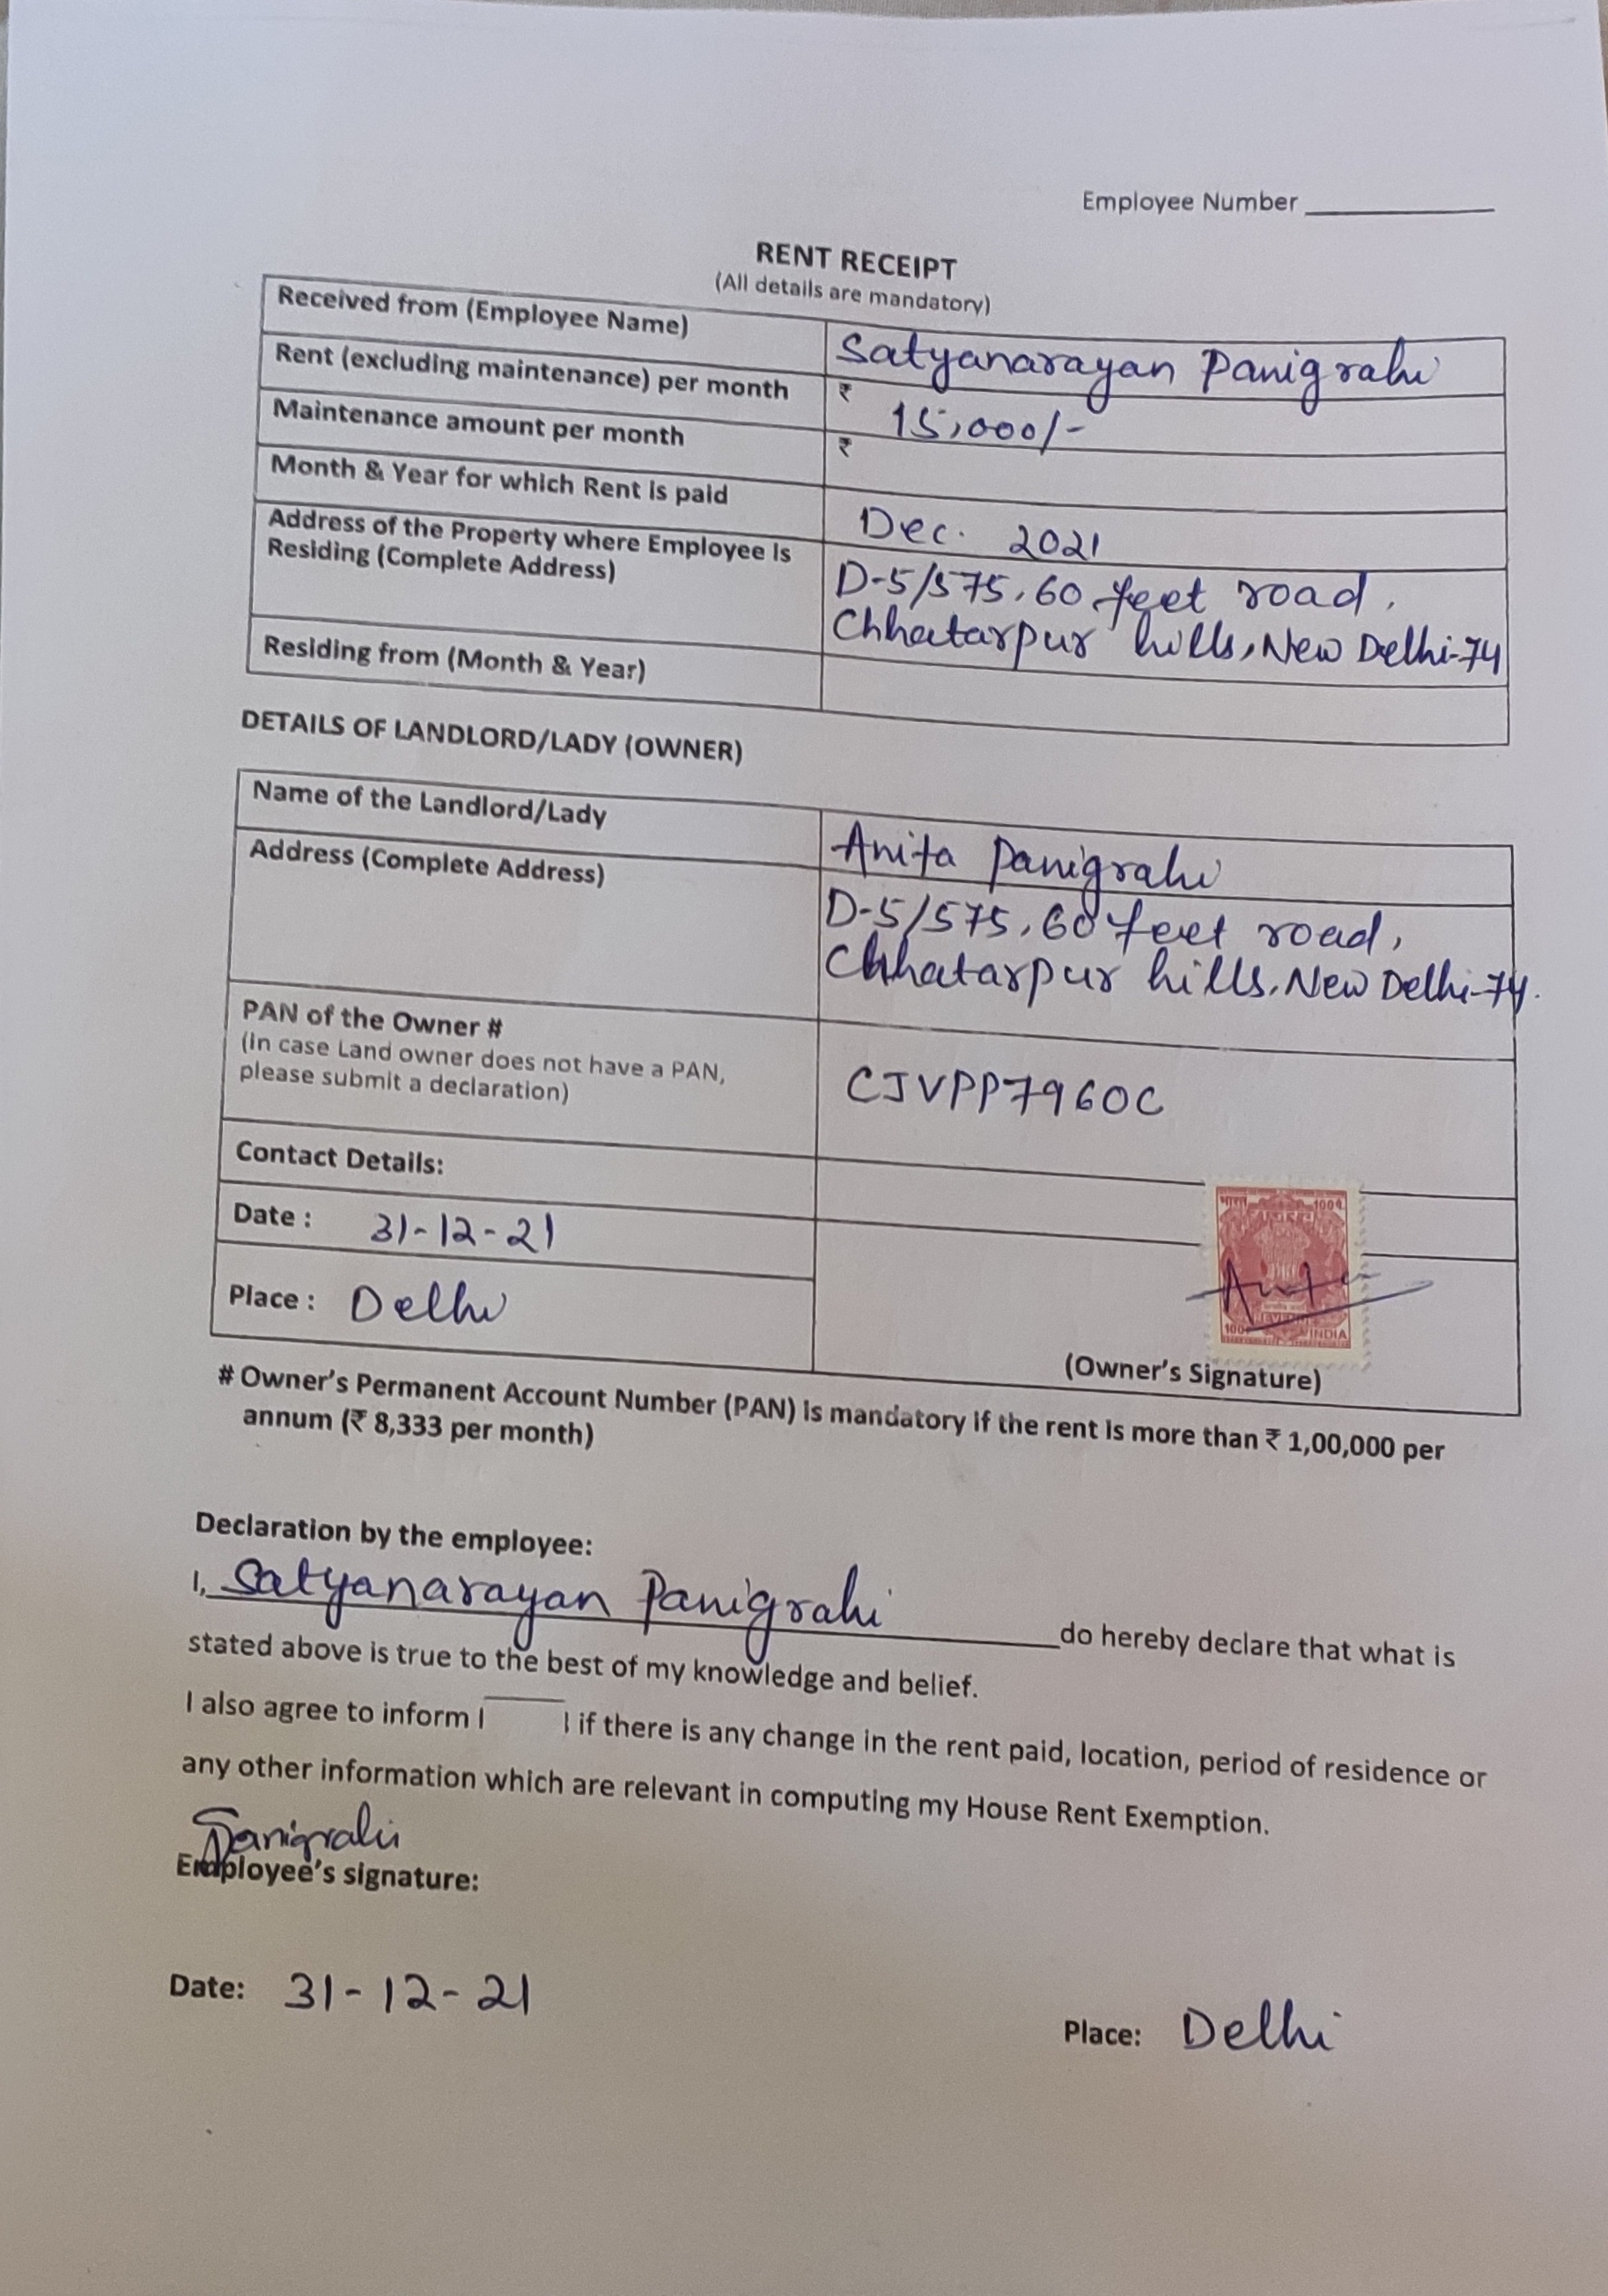 Employee Number
RENT RECEIPT
(All details are mandatory)
Received from (Employee Name) Satyanarayan Panigrahi
Rent (excluding maintenance) per month ₹ 15,000/-
Maintenance amount per month ₹
Month & Year for which Rent is paid Dec. 2021
Address of the Property where Employee is
Residing (Complete Address)
D-5/575, 60 feet road,
Chhatarpur hills, New Delhi-74
Residing from (Month & Year)
DETAILS OF LANDLORD/LADY (OWNER)
Name of the Landlord/Lady Anita Panigrahi
Address (Complete Address)
D-5/575, 60 feet road,
Chhatarpur hills, New Delhi-74.
PAN of the Owner #
(in case Land owner does not have a PAN,
please submit a declaration)
CJVPP7960C
Contact Details:
Date : 31-12-21
भारत 100
INDIA
100
Place : Delhi
(Owner's Signature)
# Owner's Permanent Account Number (PAN) is mandatory if the rent is more than ₹ 1,00,000 per
annum (₹ 8,333 per month)
Declaration by the employee:
I, Satyanarayan Panigrahi do hereby declare that what is
stated above is true to the best of my knowledge and belief.
I also agree to inform if there is any change in the rent paid, location, period of residence or
any other information which are relevant in computing my House Rent Exemption.
Panigrahi
Employee's signature:
Date: 31-12-21
Place: Delhi